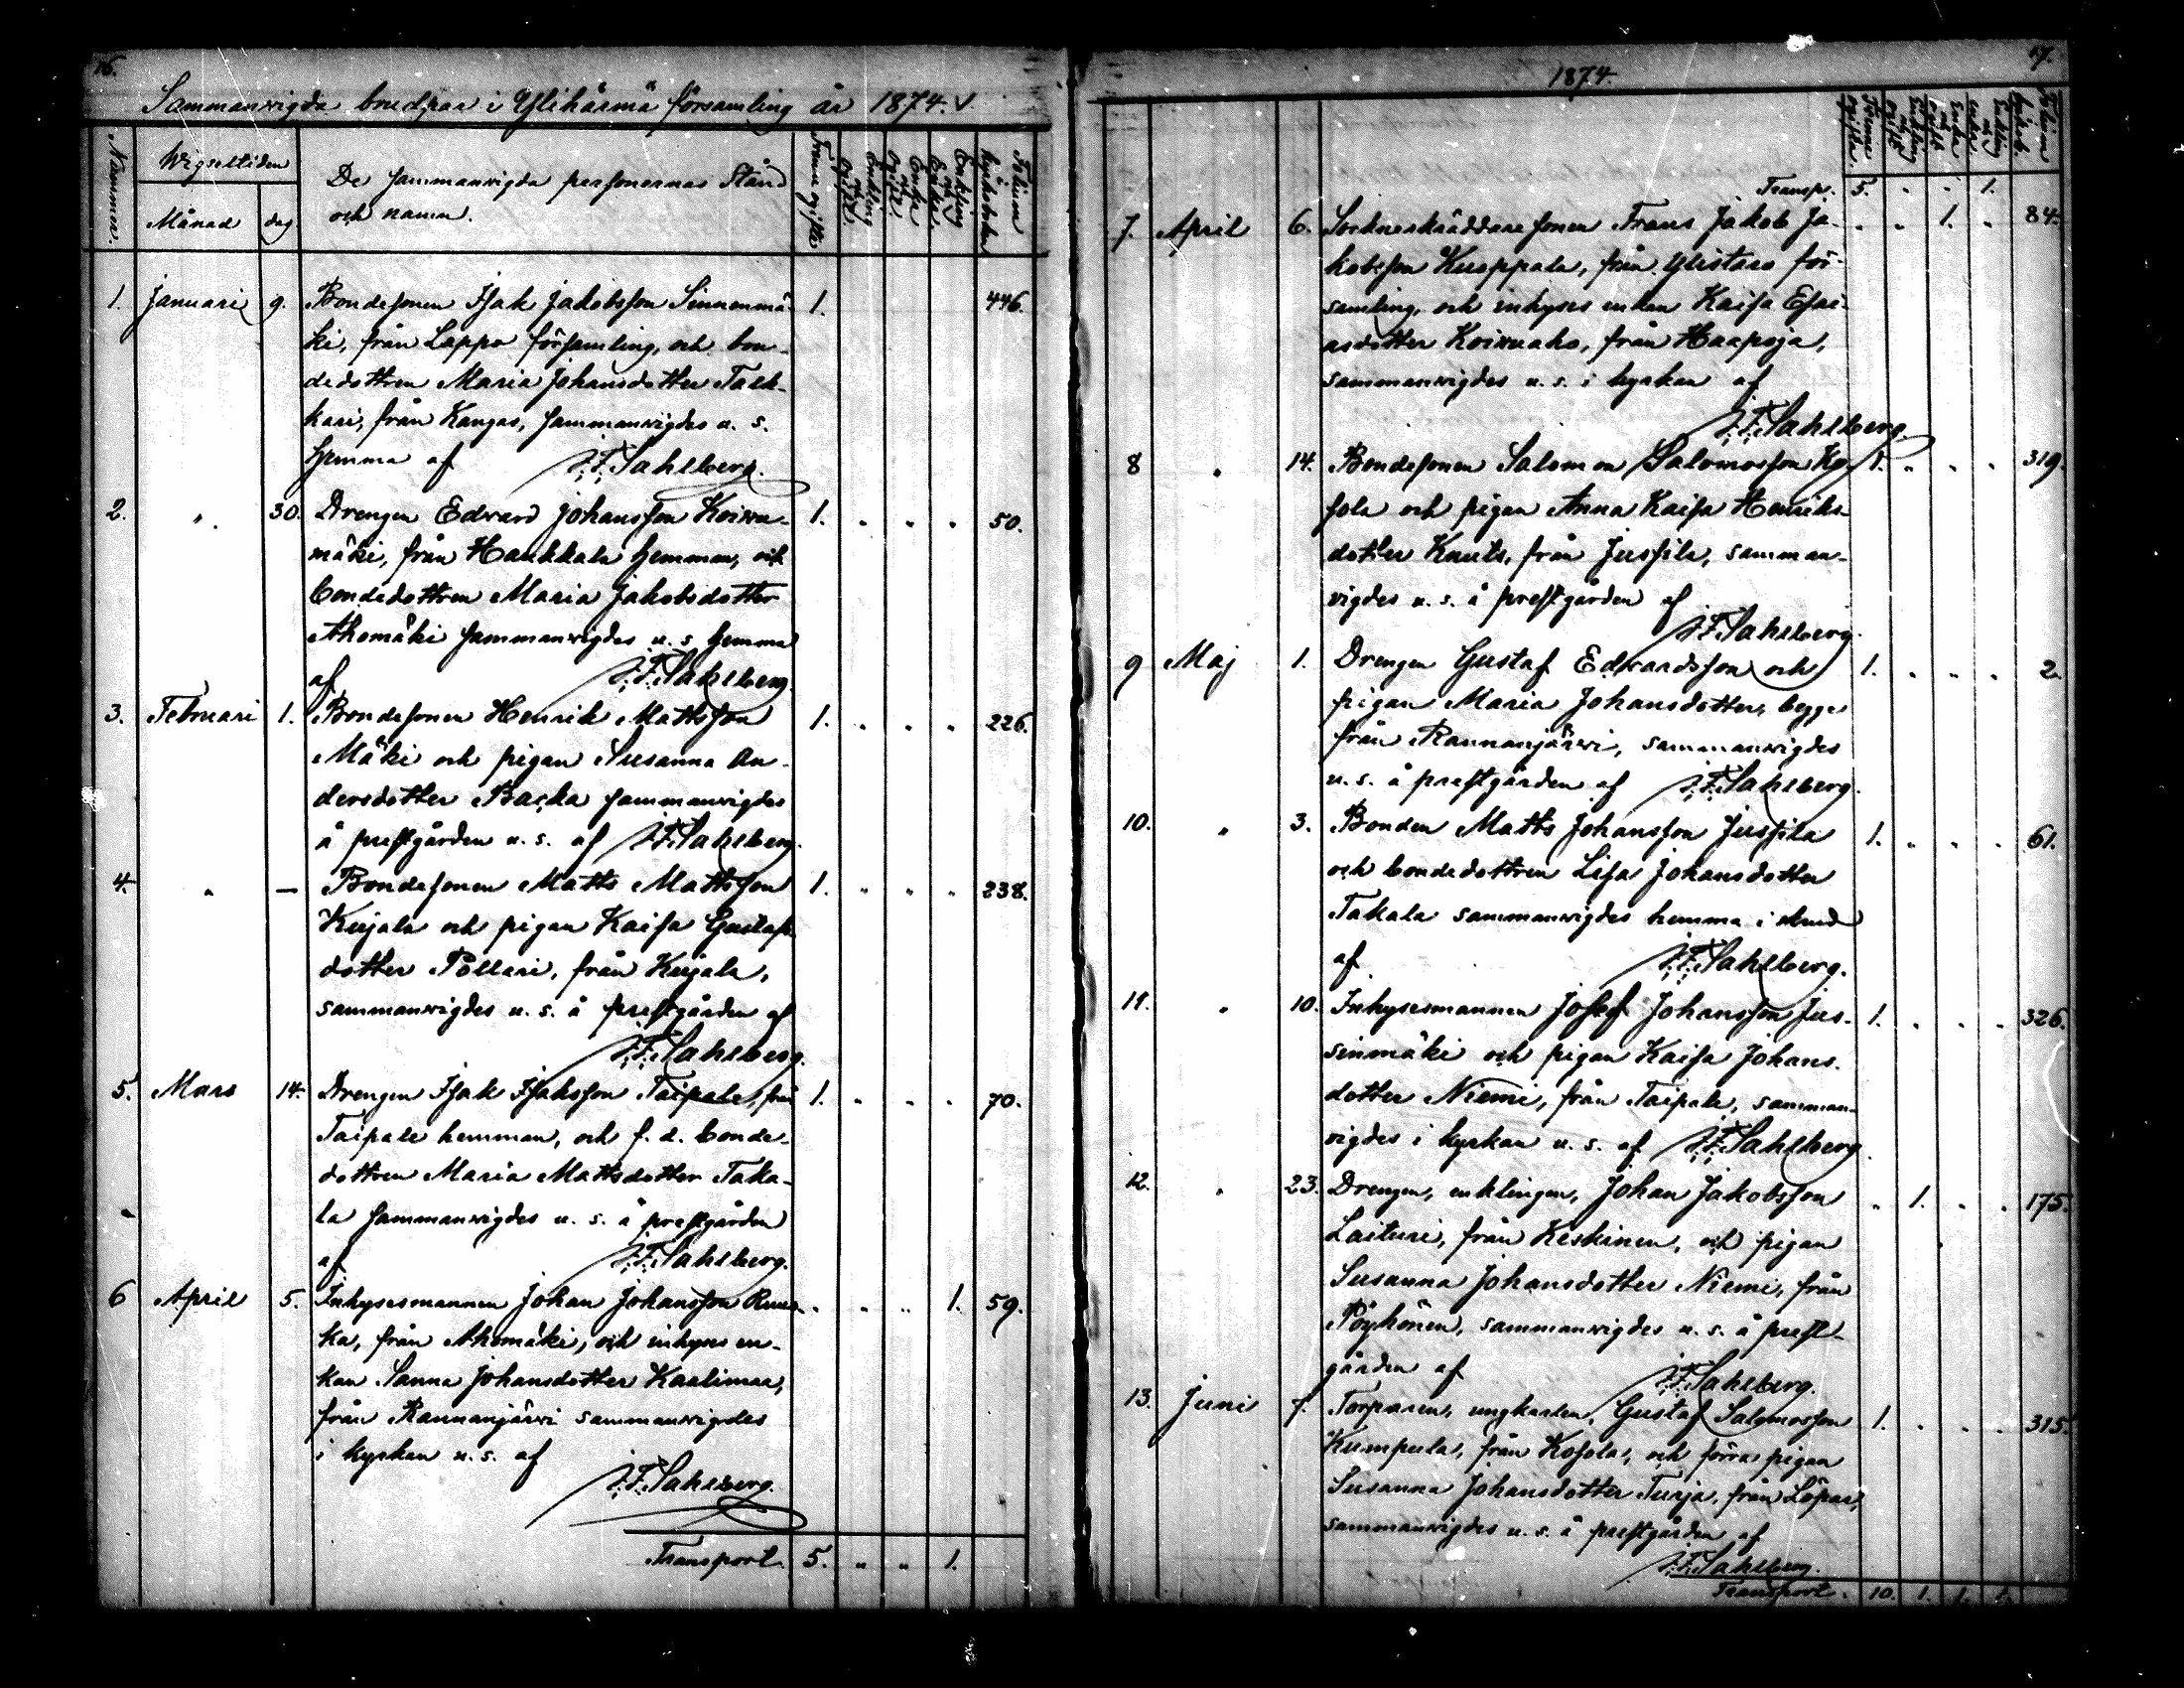 16.
Sammanvigda brudpar i Ylihärmä församling år 1874.
Nummer.
Wigseltiden
Månad
dag
De sammanvigda personernas Stånd
och namn.
Tvenne ogifte
Enkling och Ogift.
Enka och Ogift.
Enkling och Enka.
Folium i kyrkoboken
1. Januari 9. Bondesonen Isak Jakobsson Sinnenmä- 1. 446.
ki, från Lappo församling, och bon-
dedottren Maria Johansdotter Talk-
kari, från Kangas, sammanvigdes u. s.
hemma af J. F. Sahlberg.
2. " 30. Drengen Edvard Johansson Koivu- 1. " " " 50.
mäki, från Haukkala hemman, och
bondedottren Maria Jakobsdotter
Ahomäki sammanvigdes u. s. hemma
af J. F. Sahlberg.
3. Februari 1. Bondesonen Henrik Mattsson 1. " " " 226.
Mäki och pigan Susanna An-
dersdotter Backa sammanvigdes
å prestgården u. s. af J. F. Sahlberg.
4. " — Bondesonen Matts Mattsson 1. " " " 238.
Kujala och pigan Kaisa Gustafs-
dotter Pollari, från Kujala,
sammanvigdes u. s. å prestgården af
J. F. Sahlberg.
5. Mars 14. Drengen Isak Isaksson Taipale, från 1. " " " 70.
Taipale hemman, och f. d. bonde-
dottren Maria Mattsdotter Taka-
la sammanvigdes u. s. å prestgården
af J. F. Sahlberg.
6 April 5. Inhysesmannen Johan Johansson " " " 1. 59.
ka, från Ahomäki, och inhyses en-
kan Sanna Johansdotter Kaalimaa,
från Rannanjärvi sammanvigdes
i kyrkan u. s. af
J. F. Sahlberg.
Transport. 5. " " 1.
17.
1874.
Tvenne Ogifta.
Enkling och Ogift
Ogift och Enka
Enkling och Enka
Folium i kyrkob.
Transp. 5. " " 1.
7. April 6. Sockneskräddaresonen Frans Jakob Ja- " " 1. " 84.
kobsson Kuoppala, från Ylistaro för-
samling, och inhyses enkan Kaisa Esai-
asdotter Koivuaho, från Haapoja,
sammanvigdes u. s. i kyrkan af
J. F. Sahlberg.
8 " 14. Bondesonen Salomon Salomonsson Ko- 1. " " " 319.
sola och pigan Anna Kaisa Henriks-
dotter Kauts, från Jussila, samman-
vigdes u. s. å prestgården af
J. F. Sahlberg.
9 Maj 1. Drengen Gustaf Edvardsson och 1. " " " 2.
pigan Maria Johansdotter, begge
från Rannanjärvi, sammanvigdes
u. s. å prestgården af J. F. Sahlberg.
10. " 3. Bonden Matts Johansson Jussila 1. " " " 61.
och bondedottren Lisa Johansdotter
Takala sammanvigdes hemma i
af J. F. Sahlberg.
11. " 10. Inhysesmannen Josef Johansson Jus- 1. " " " 326.
sinmäki och pigan Kaisa Johans-
dotter Niemi, från Taipale, samman-
vigdes i kyrkan u. s. af J. F. Sahlberg
12. " 23. Drengen, enklingen, Johan Jakobsson " 1. " " 175.
Laituri, från Keskinen, och pigan
Susanna Johansdotter Niemi, från
Pöyhönen, sammanvigdes u. s. å prest-
gården af J. F. Sahlberg.
13. Juni 7. Torparen, ungkarlen, Gustaf Salomonsson 1. " " " 315.
Kumpula, från Kosola, och förra pigan
Susanna Johansdotter Turja, från Löpar,
sammanvigdes u. s. å prestgården af
J. F. Sahlberg.
Transport. 10. 1. 1. 1.